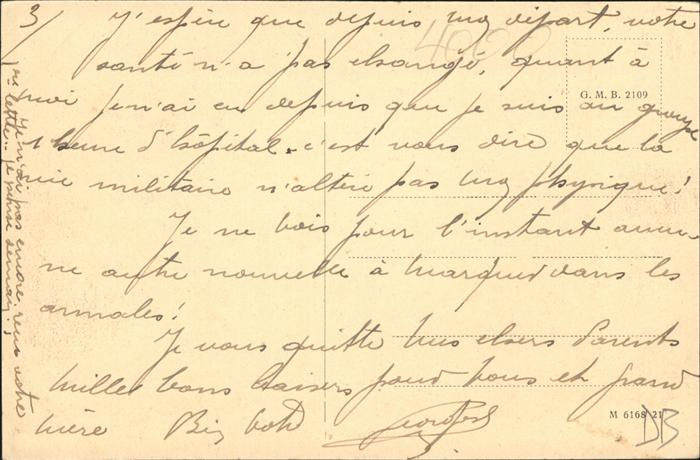 3/
J'espère que depuis mon départ, votre
santé n'a pas changé, quant à
moi je n'ai eu depuis que je suis au groupe
1 heure d'hôpital. c'est vous dire que la
vie militaire n'altère pas mon physique!
Je ne vois pour l'instant aucu-
ne autre nouvelle à marquer dans les
annales!
Je vous quitte mes chers Parents
mille bons baisers pour vous et grand
mère Georges
Je n'ai pas encore reçu votre
lettre. je pense demain!
4000
G. M. B. 2109
M 6168 21
DB